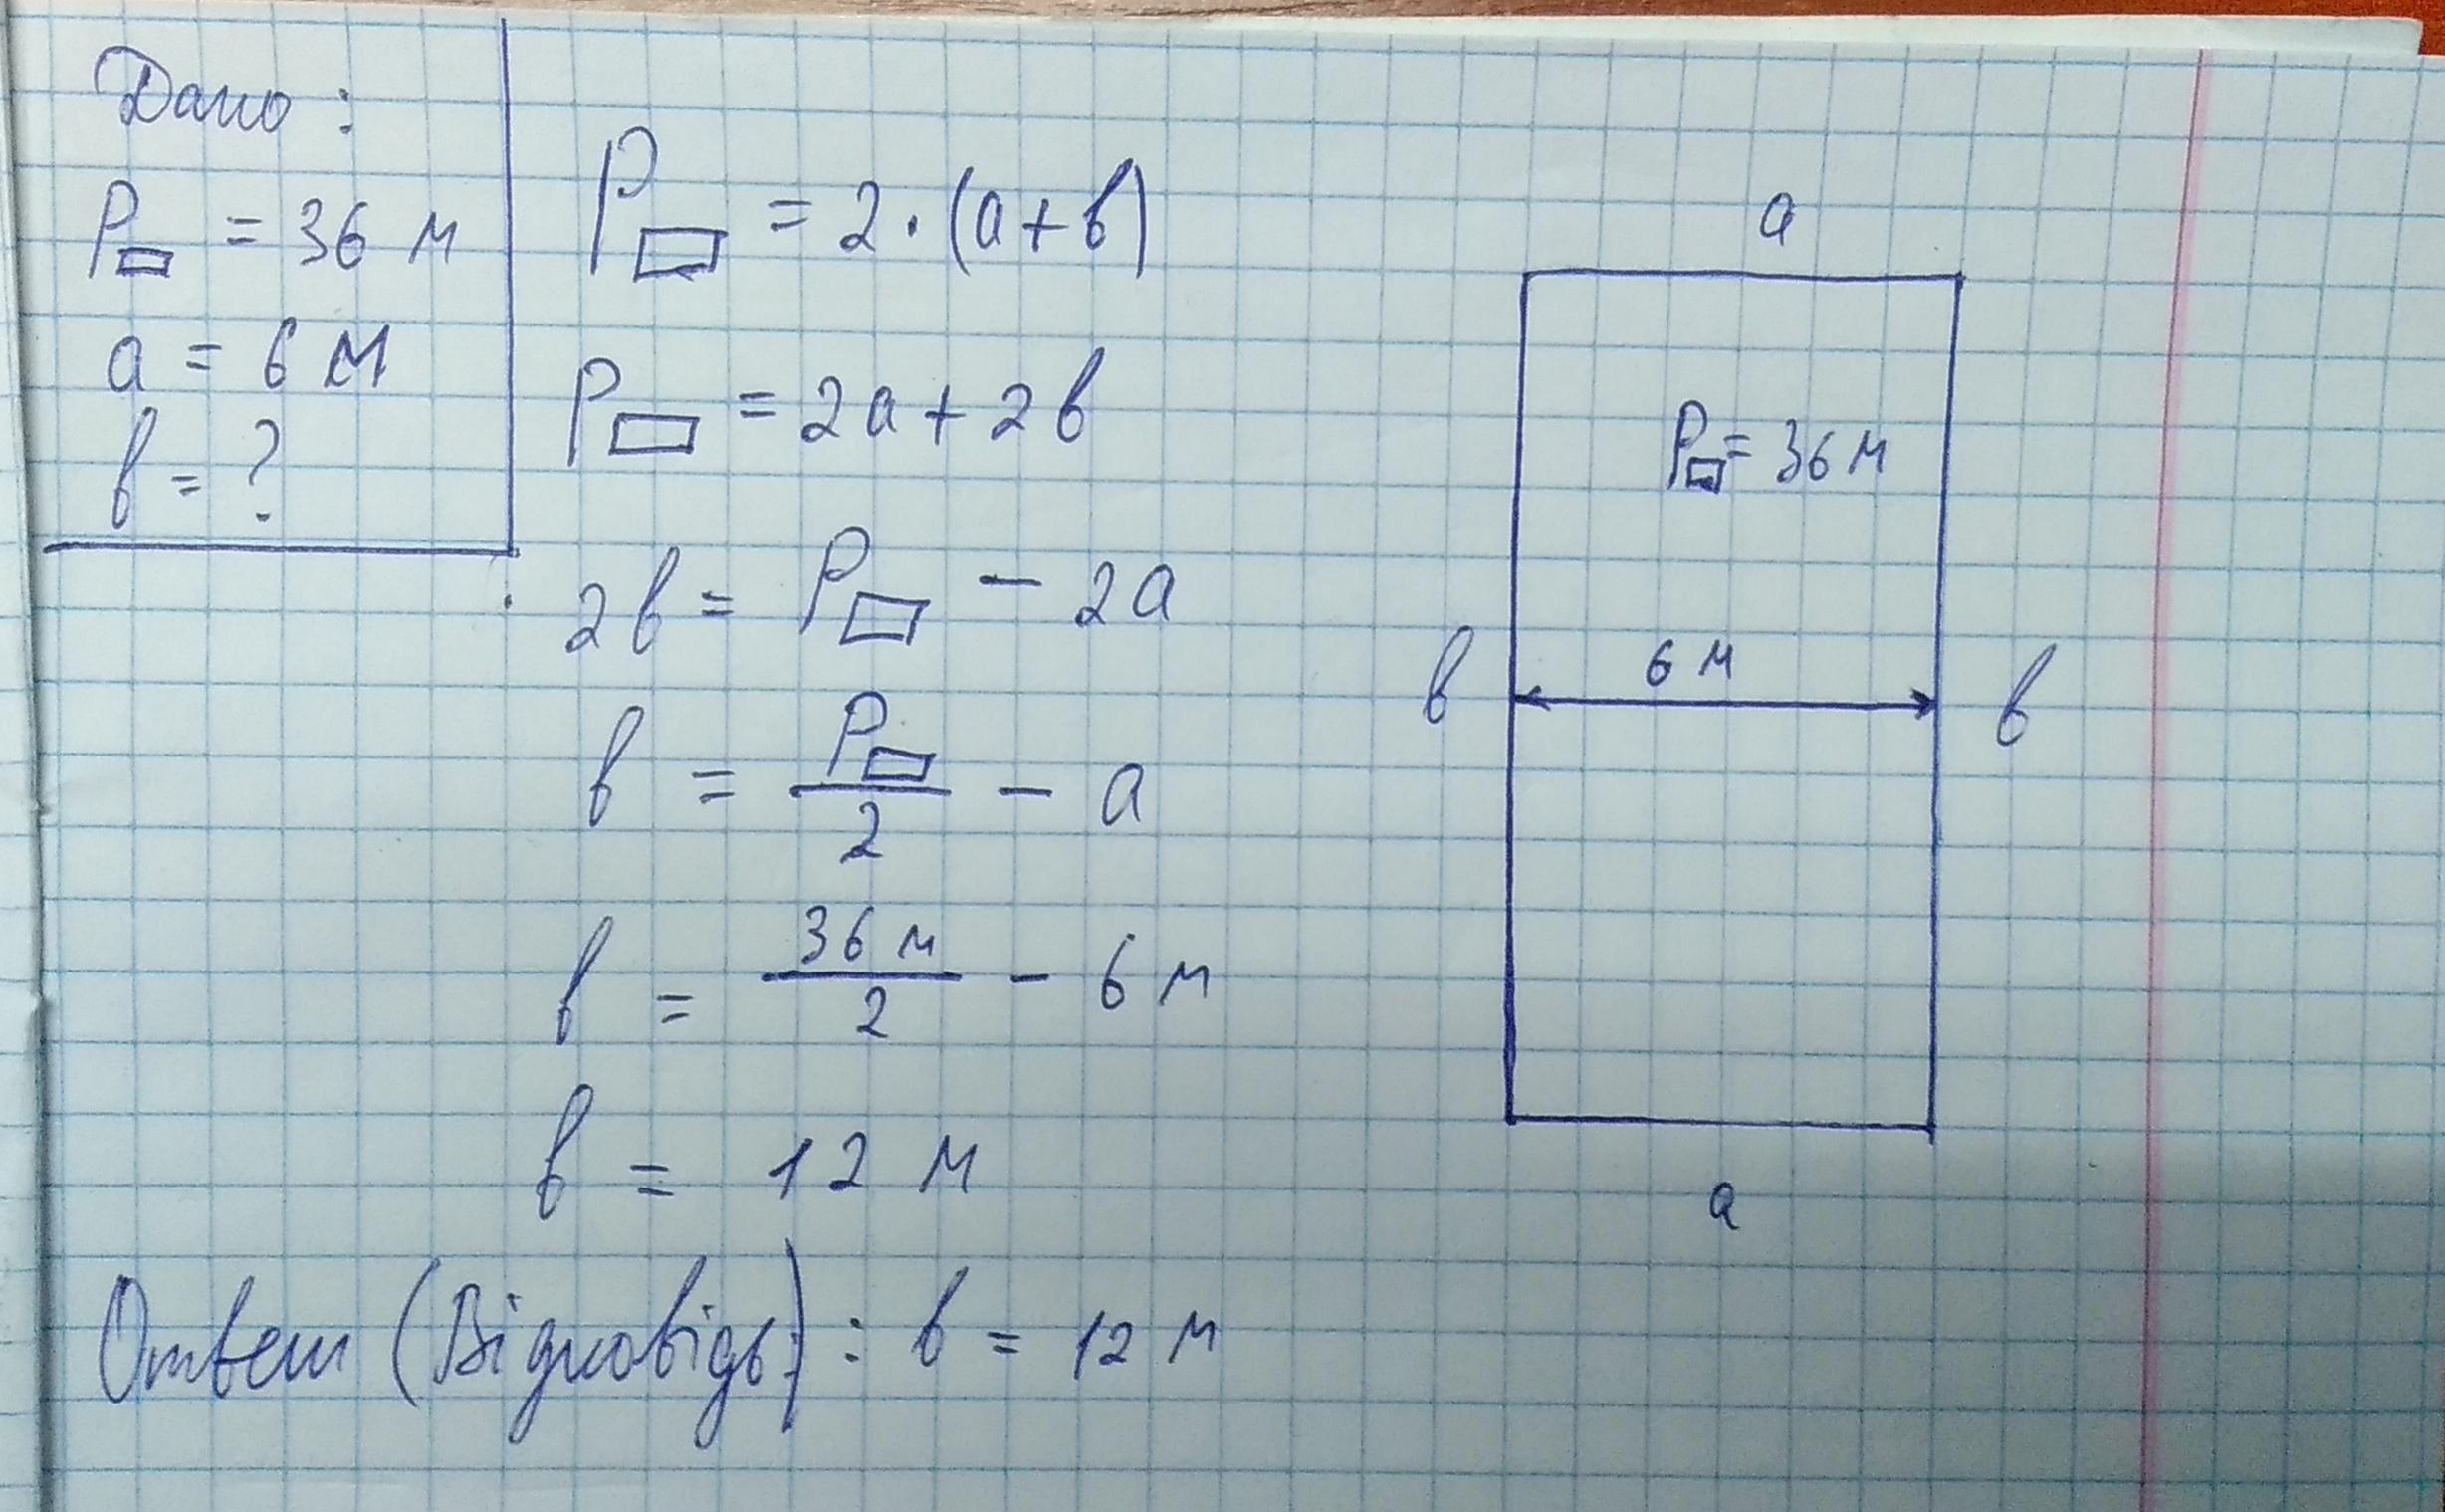 Дано:
P▭ = 36 м
a = 6 м
в = ?
P▭ = 2·(a+в)
P▭ = 2a + 2в
2в = P▭ − 2a
в = P▭/2 − a
в = 36 м/2 − 6 м
в = 12 м
Ответ (Відповідь): в = 12 м
a
P▭ = 36 м
6 м
в
в
a